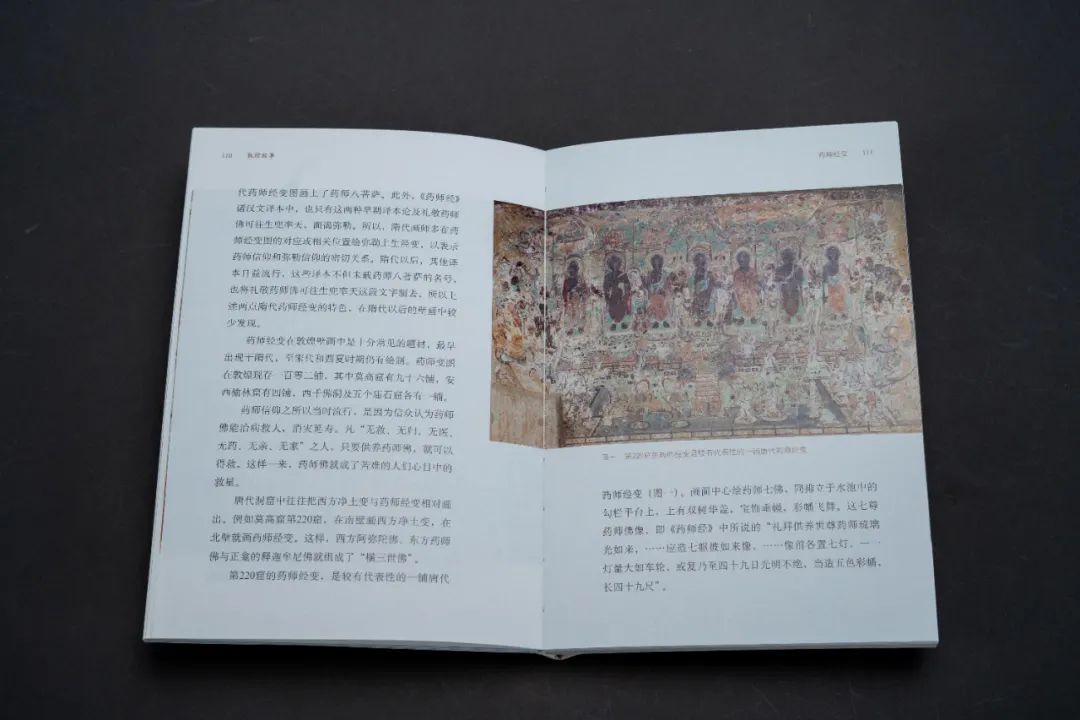 110 敦煌故事
代药师经变图画上了药师八菩萨。此外,《药师经》
诸汉文译本中,也只有这两种早期译本论及礼敬药师
佛可往生兜率天,面谒弥勒。所以,隋代画师多在药
师经变图的对应或相关位置绘弥勒上生经变,以表示
药师信仰和弥勒信仰的密切关系。隋代以后,其他译
本日益流行,这些译本不但未载药师八菩萨的名号,
也将礼敬药师佛可往生兜率天这段文字删去。所以上
述两点隋代药师经变的特色,在隋代以后的壁画中较
少发现。
药师经变在敦煌壁画中是十分常见的题材,最早
出现于隋代,至宋代和西夏时期仍有绘制。药师变画
在敦煌现存一百零二铺,其中莫高窟有九十六铺,安
西榆林窟有四铺,西千佛洞及五个庙石窟各有一铺。
药师信仰之所以当时流行,是因为信众认为药师
佛能治病救人,消灾延寿。凡“无救、无归、无医、
无药、无亲、无家”之人,只要供养药师佛,就可以
得救。这样一来,药师佛就成了苦难的人们心目中的
救星。
唐代洞窟中往往把西方净土变与药师经变相对画
出。例如莫高窟第220窟,在南壁画西方净土变,在
北壁就画药师经变。这样,西方阿弥陀佛、东方药师
佛与正龛的释迦牟尼佛就组成了“横三世佛”。
第220窟的药师经变,是较有代表性的一铺唐代
药师经变 111
图一 第220窟的药师经变是较有代表性的一铺唐代药师经变
药师经变(图一)。画面中心绘药师七佛,同排立于水池中的
勾栏平台上,上有双树华盖,宝饰垂幔,彩幡飞舞。这七尊
药师佛像,即《药师经》中所说的“礼拜供养世尊药师琉璃
光如来,……应造七躯彼如来像,……像前各置七灯,一一
灯量大如车轮,或复乃至四十九日光明不绝,当造五色彩幡,
长四十九尺”。